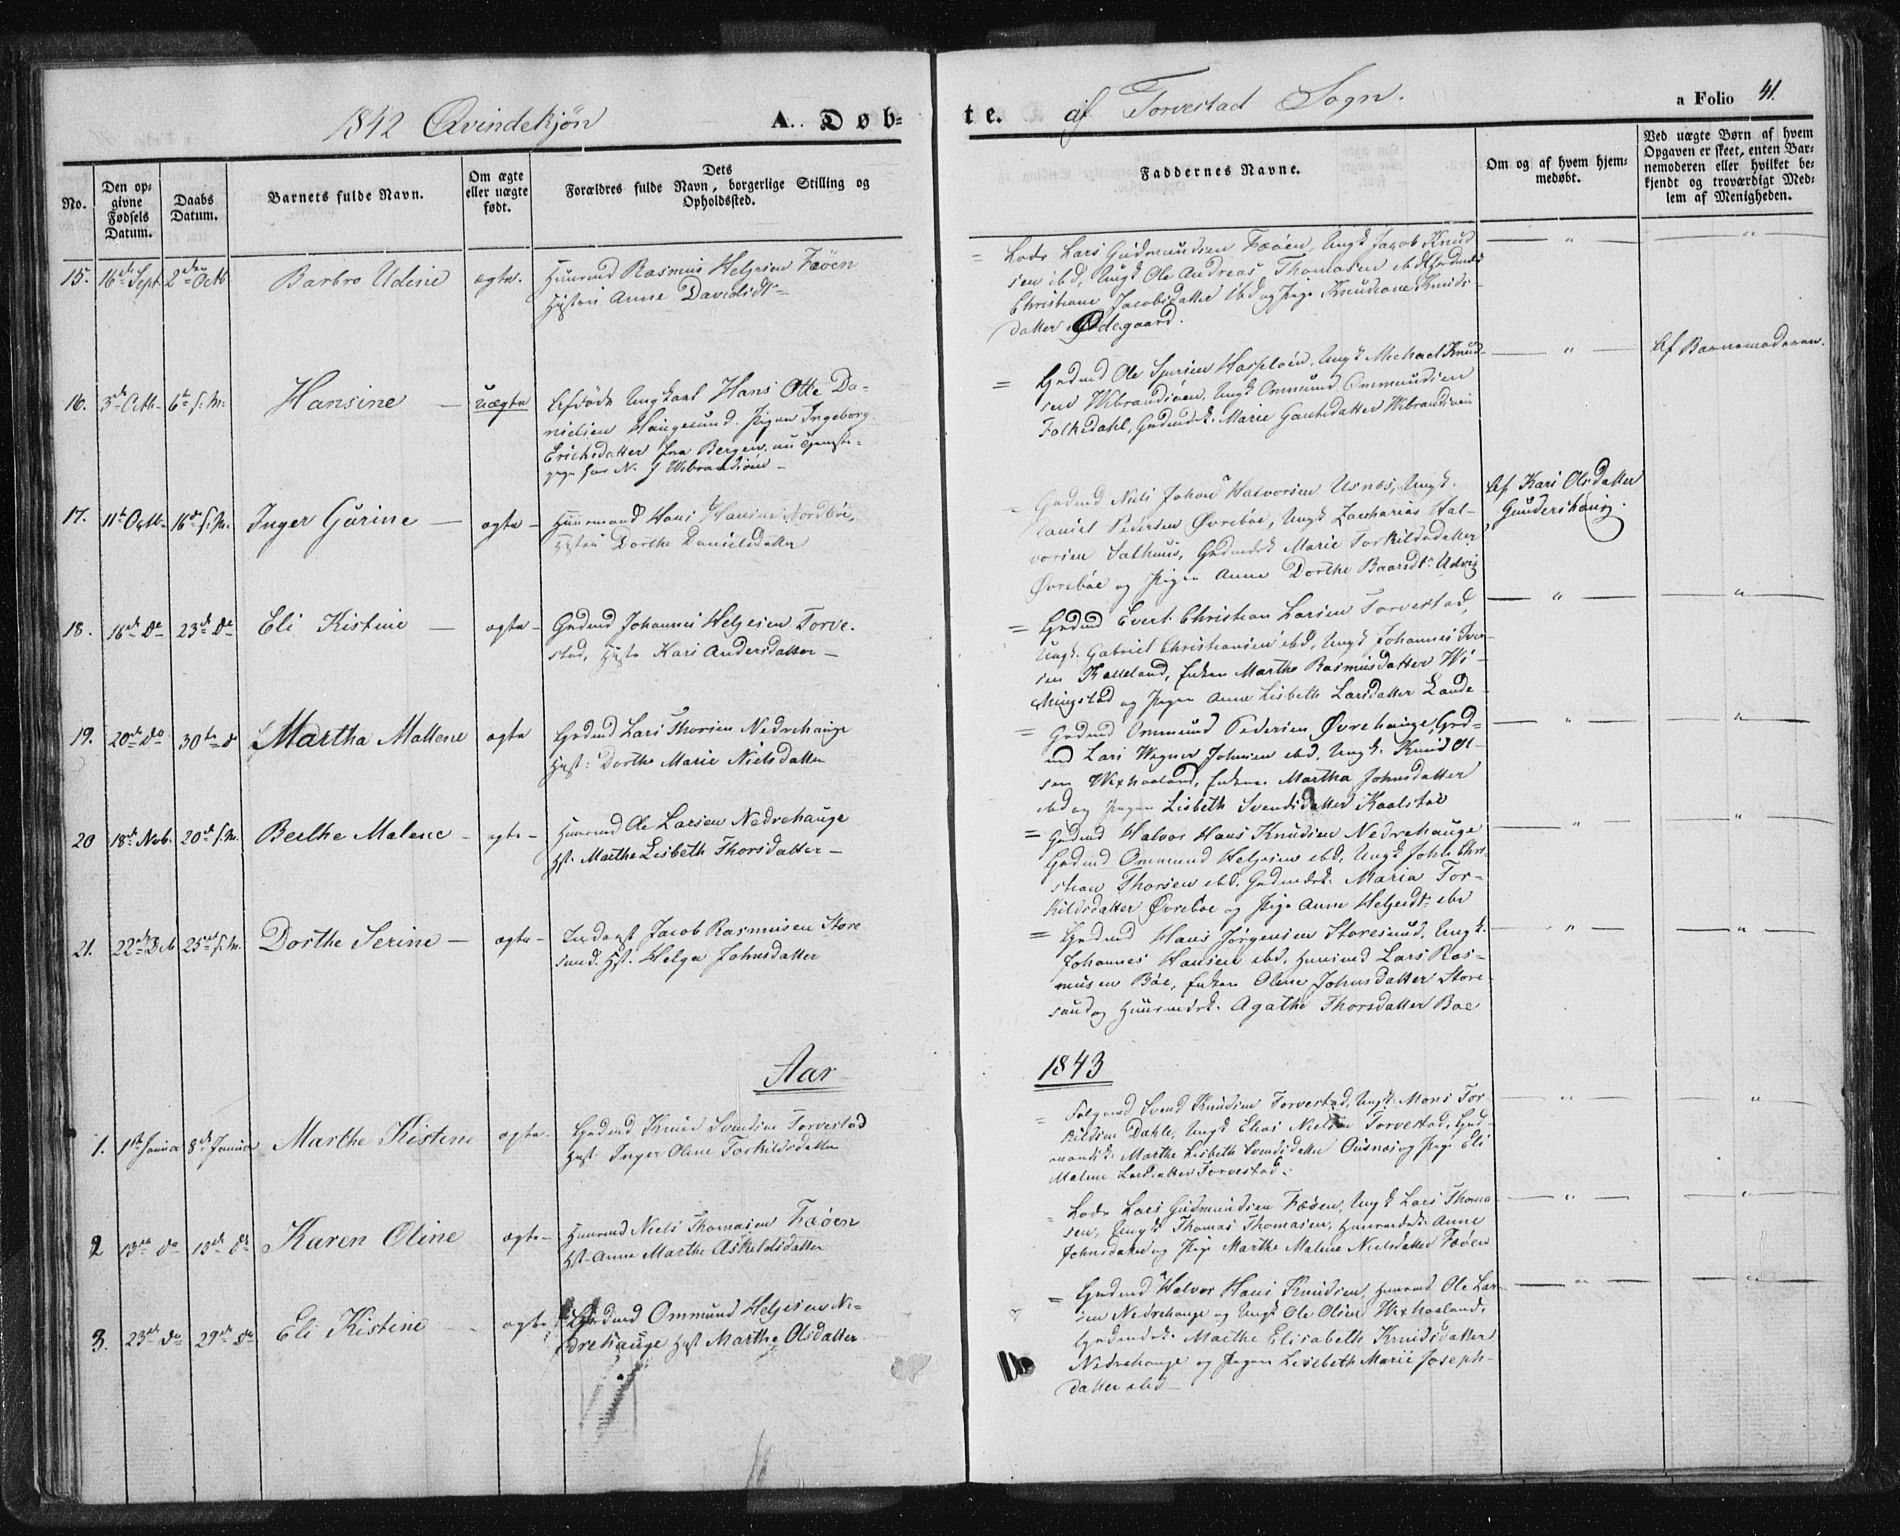 1842 Qvindekjön
A. Døb-
te.
af Torvestad Sogn.
a Folio 41.
No.
Den op-
givne
Fødsels
Datum.
Daabs
Datum.
Barnets fulde Navn.
Om ægte
eller uægte
født.
Dets
Forældres fulde Navn, borgerlige Stilling og
Opholdssted.
Faddernes Navne.
Om og af hvem hjem-
medøbt.
Ved uægte Børn af hvem
Opgaven er skeet, enten Bar-
nemoderen eller hvilket be-
kjendt og troværdigt Med-
lem af Menigheden.
15. 16de Sept. 2den Octb Barbro Udine ægte.
Huusmd Rasmus Helgesen Feøen
Hustru Anne Davidsdtr
Lods Lars Gudmundsen Feøen, Ungk Jacob Knud
sen ibd, Ungk Ole Andreas Thomasen ibd
Christiane Jacobsdatter ibd og Pige Knudsane Knuds-
datter Ødegaard.
16. 3de Octb. 6te s. M. Hansine uægte
Ungkarl Hans Otte Da-
nielsen Haugesund. Pigen Ingeborg
Erichsdatter fra Bergen, nu
pige hos N. J Wibrandsøen
Grdmd Ole Hasseløen, Ungk Michael Knud-
sen Wibrandsøen, Ungk Ommund Ommundsen
Falkedahl, Grdmdsk. Marie Gautsdatter Wibrandsøen
Af Barnemoderen.
17. 11te Octb. 16de s. M. Inger Gurine ægte
Huusmand Hans Hansen Nordbøe,
Hustru Dorthe Danielsdatter
Grdmd Niels Johan Halvorsen Usnes, Ungk.
Daniel Pedersen Øvrebøe, Ungk Zacharias Hal-
vorsen Salhuus, Grdmdsk Marie Torkildsdatter
Øvrebøe og Pigen Anne Dorthe Baardsdtr Udvig
Af Kari Olsdatter
Gunders Haug.
18. 16de Do 23de Do Eli Kistine ægte
Grdmd Johannes Helgesen Torve-
stad, Hustr Kari Andersdatter
Grdmd Evert Christian Larsen Torvestad,
Ungk. Gabriel Christiansen ibd, Ungk Johannes Iver-
sen Kalleland, Enken Marthe Rasmusdatter Wi-
Mingstad og Pigen Anne Lisbeth Larsdatter Lande
19. 20de do 30te do Martha Mallene ægte
Grdmd Lars Thorsen Nedrehauge
Hust: Dorthe Marie Nielsdatter
Grdmd Ommund Pedersen Øvrehauge, Grd-
md Lars Wegner Johnsen ibd, Ungk. Knud Ol-
sen Wixhaaland, Enken Martha Johnsdatter
ibd og Pigen Lisbeth Svendsdatter Kaalstøe
20 18de Nvb. 20de s. M. Berthe Malene ægte
Huusmd Ole Larsen Nedrehauge
Hst. Marthe Lisbeth Thorsdatter
Grdmd Halvor Hans Knudsen Nedrehauge
Grdmd Ommund Helgesen ibd, Ungk John Chri-
stian Thorsen ibd. Grdmdsk. Maria Tor-
kildsdatter Øvrebøe og Pige Anne Helgesdtr ibd
21. 22de Decb 25de s. M. Dorthe Serine ægte
Jacob Rasmusen Store
sund. Hst. Helga Johnsdatter
Grdmd Hans Jørgensen Storesund, Ungk.
Johannes Hansen ibd, Huusmd Lars Ras-
musen Bøe, Enken Olene Johnsdatter Store-
sund og Huusmdsk. Agathe Thorsdatter Bøe
Aar
1843
1. 1ste Januar 8de Januar Marthe Kistine ægte
Grdmd Knud Svendsen Torvestad
Hust Inger Olene Torkildsdatter
Svend Knudsen Torvestad, Ungk. Mons Tor-
kildsen Dahle, Ungk Elias Nielsen Torvestad, Grd-
mandsk: Marthe Lisbeth Svendsdatter Ousnes og Pige Eli
Malene Larsdatter Torvestad.
2 13de do 15de do Karen Oline ægte
Huusmd Niels Thomasen Feøen
Hst. Anne Marthe Askeldsdatter
Lods Lars Gudmundsen Feøen, Ungk Lars Thoma-
sen, Ungk Thomas Thomasen, Huusmdsk. Anne
Johnsdatter og Pige Marthe Malene Nielsdatter Feøen
3. 23de do 29de do Eli Kistine ægte
Grdmd Ommund Helgesen Ne-
drehauge Hust Marthe Olsdatter
Grdmd Halvor Hans Knudsen, Huusmd Ole Lar-
sen Nedrehauge og Ungk Ole Olsen Wixhaaland,
Grdmdsk. Marthe Elisabeth Knudsdatter
Nedrehauge og Pigen Lisebeth Marie Joseph-
datter ibd